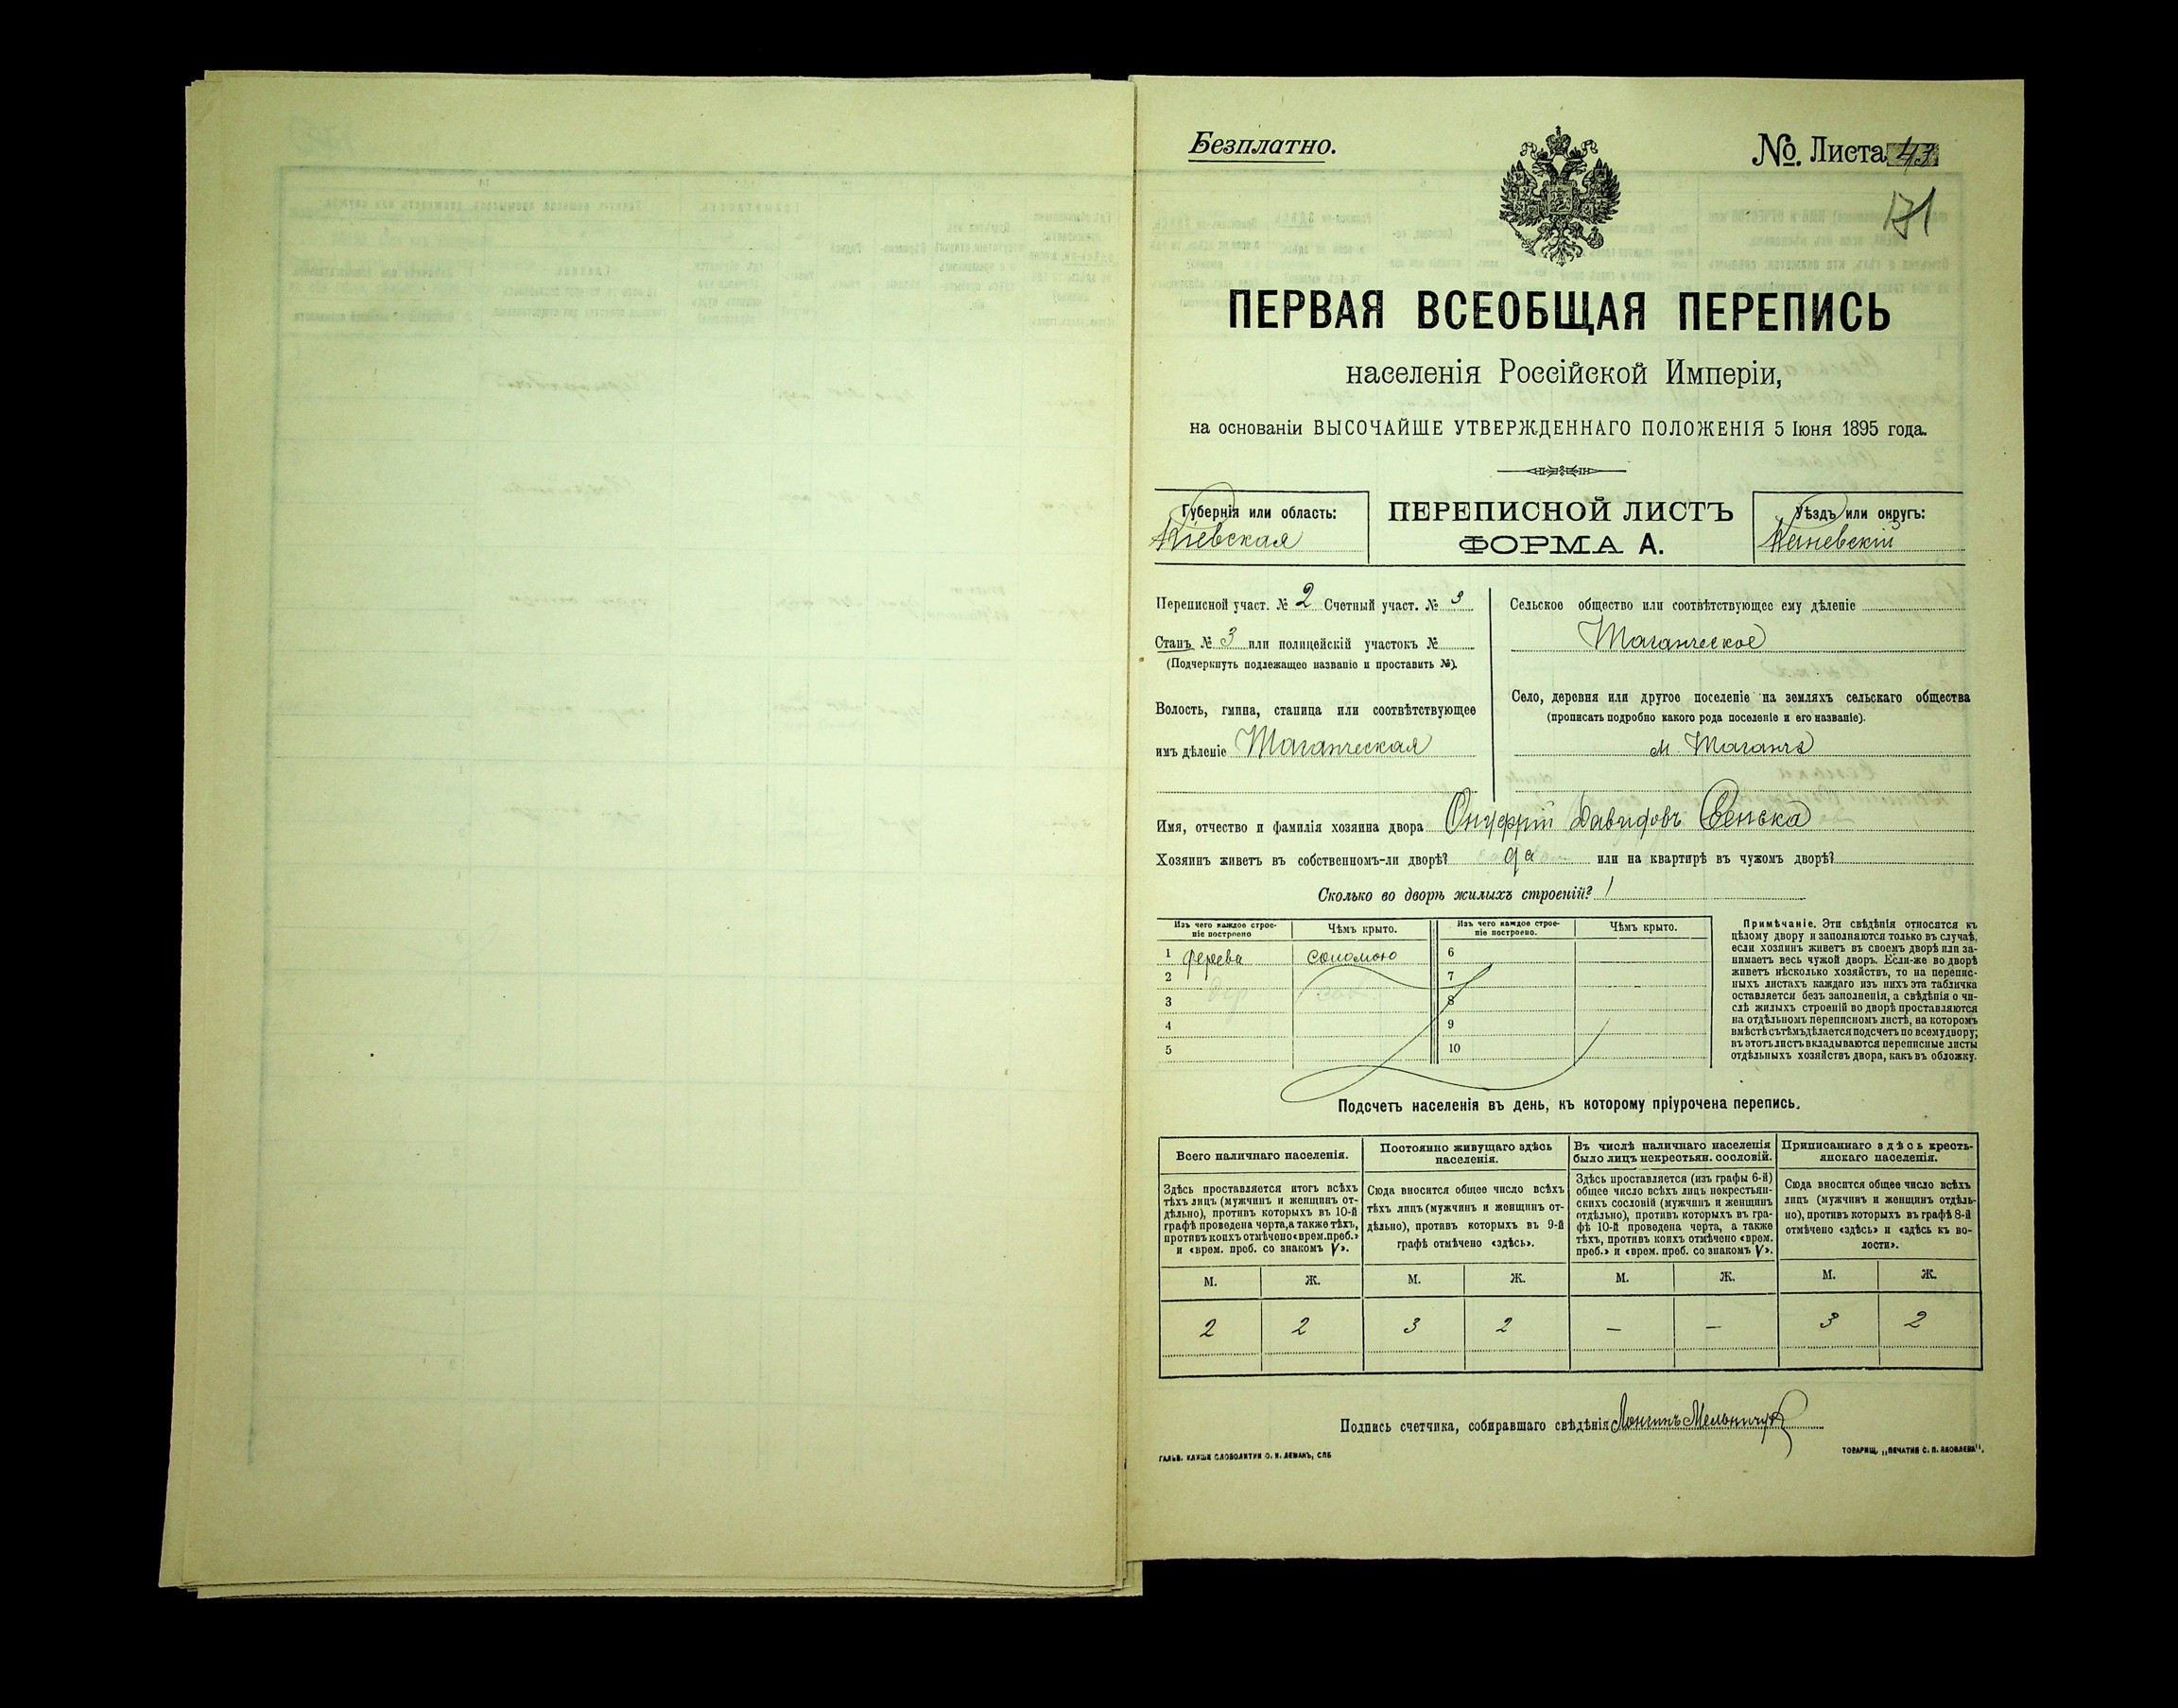 Безплатно.
№ Листа 43
171
ПЕРВАЯ ВСЕОБЩАЯ ПЕРЕПИСЬ
населенія Россійской Имперіи,
на основаніи ВЫСОЧАЙШЕ УТВЕРЖДЕННАГО ПОЛОЖЕНІЯ 5 Іюня 1895 года.
Губернія или область:
Кіевская
ПЕРЕПИСНОЙ ЛИСТЪ
ФОРМА А.
Уѣздъ или округъ:
Каневскій
Переписной участ. № 2 Счетный участ. № 3
Станъ № 3 или полицейскій участокъ №
(Подчеркнуть подлежащее названіе и проставить №).
Волость, гмина, станица или соотвѣтствующее
имъ дѣленіе Таганческая
Сельское общество или соотвѣтствующее ему дѣленіе
Таганческое
Село, деревня или другое поселеніе на земляхъ сельскаго общества
(прописать подробно какого рода поселеніе и его названіе).
м. Таганча
Имя, отчество и фамилія хозяина двора Онуфрій Давидовъ Сенька
Хозяинъ живетъ въ собственномъ-ли дворѣ? да или на квартирѣ въ чужомъ дворѣ?
Сколько во дворѣ жилыхъ строеній? 1
Изъ чего каждое строеніе построено
Чѣмъ крыто.
Изъ чего каждое строеніе построено.
Чѣмъ крыто.
1 дерева соломою 6
2 7
3 8
4 9
5 10
Примѣчаніе. Эти свѣдѣнія относятся къ
цѣлому двору и заполняются только въ случаѣ,
если хозяинъ живетъ въ своемъ дворѣ или за-
нимаетъ весь чужой дворъ. Если-же во дворѣ
живетъ нѣсколько хозяйствъ, то на перепис-
ныхъ листахъ каждаго изъ нихъ эта табличка
оставляется безъ заполненія, а свѣдѣнія о чи-
слѣ жилыхъ строеній во дворѣ проставляются
на отдѣльномъ переписномъ листѣ, на которомъ
вмѣстѣ съ тѣмъ дѣлается подсчетъ по всему двору;
въ этотъ листъ вкладываются переписные листы
отдѣльныхъ хозяйствъ двора, какъ въ обложку.
Подсчетъ населенія въ день, къ которому пріурочена перепись.
Всего наличнаго населенія.
Здѣсь проставляется итогъ всѣхъ
тѣхъ лицъ (мужчинъ и женщинъ от-
дѣльно), противъ которыхъ въ 10-й
графѣ проведена черта, а также тѣхъ,
противъ коихъ отмѣчено «врем. преб.»
и «врем. преб. со знакомъ V».
Постоянно живущаго здѣсь
населенія.
Сюда вносится общее число всѣхъ
тѣхъ лицъ (мужчинъ и женщинъ от-
дѣльно), противъ которыхъ въ 9-й
графѣ отмѣчено «здѣсь».
Въ числѣ наличнаго населенія
было лицъ некрестьян. сословій.
Здѣсь проставляется (изъ графы 6-й)
общее число всѣхъ лицъ некрестьян-
скихъ сословій (мужчинъ и женщинъ
отдѣльно), противъ которыхъ въ гра-
фѣ 10-й проведена черта, а также
тѣхъ, противъ коихъ отмѣчено «врем.
преб.» и «врем. преб. со знакомъ V».
Приписаннаго здѣсь кресть-
янскаго населенія.
Сюда вносится общее число всѣхъ
лицъ (мужчинъ и женщинъ отдѣль-
но), противъ которыхъ въ графѣ 8-й
отмѣчено «здѣсь» и «здѣсь къ во-
лости».
М. Ж. М. Ж. М. Ж. М. Ж.
2 2 3 2 — — 3 2
Подпись счетчика, собиравшаго свѣдѣнія Лонгинъ Мельничук
ГАЛЬВ. КЛИШЕ СЛОВОЛИТНИ О. И. ЛЕМАНЪ, СПБ
ТОВАРИЩ. „ПЕЧАТНЯ С. П. ЯКОВЛЕВА".